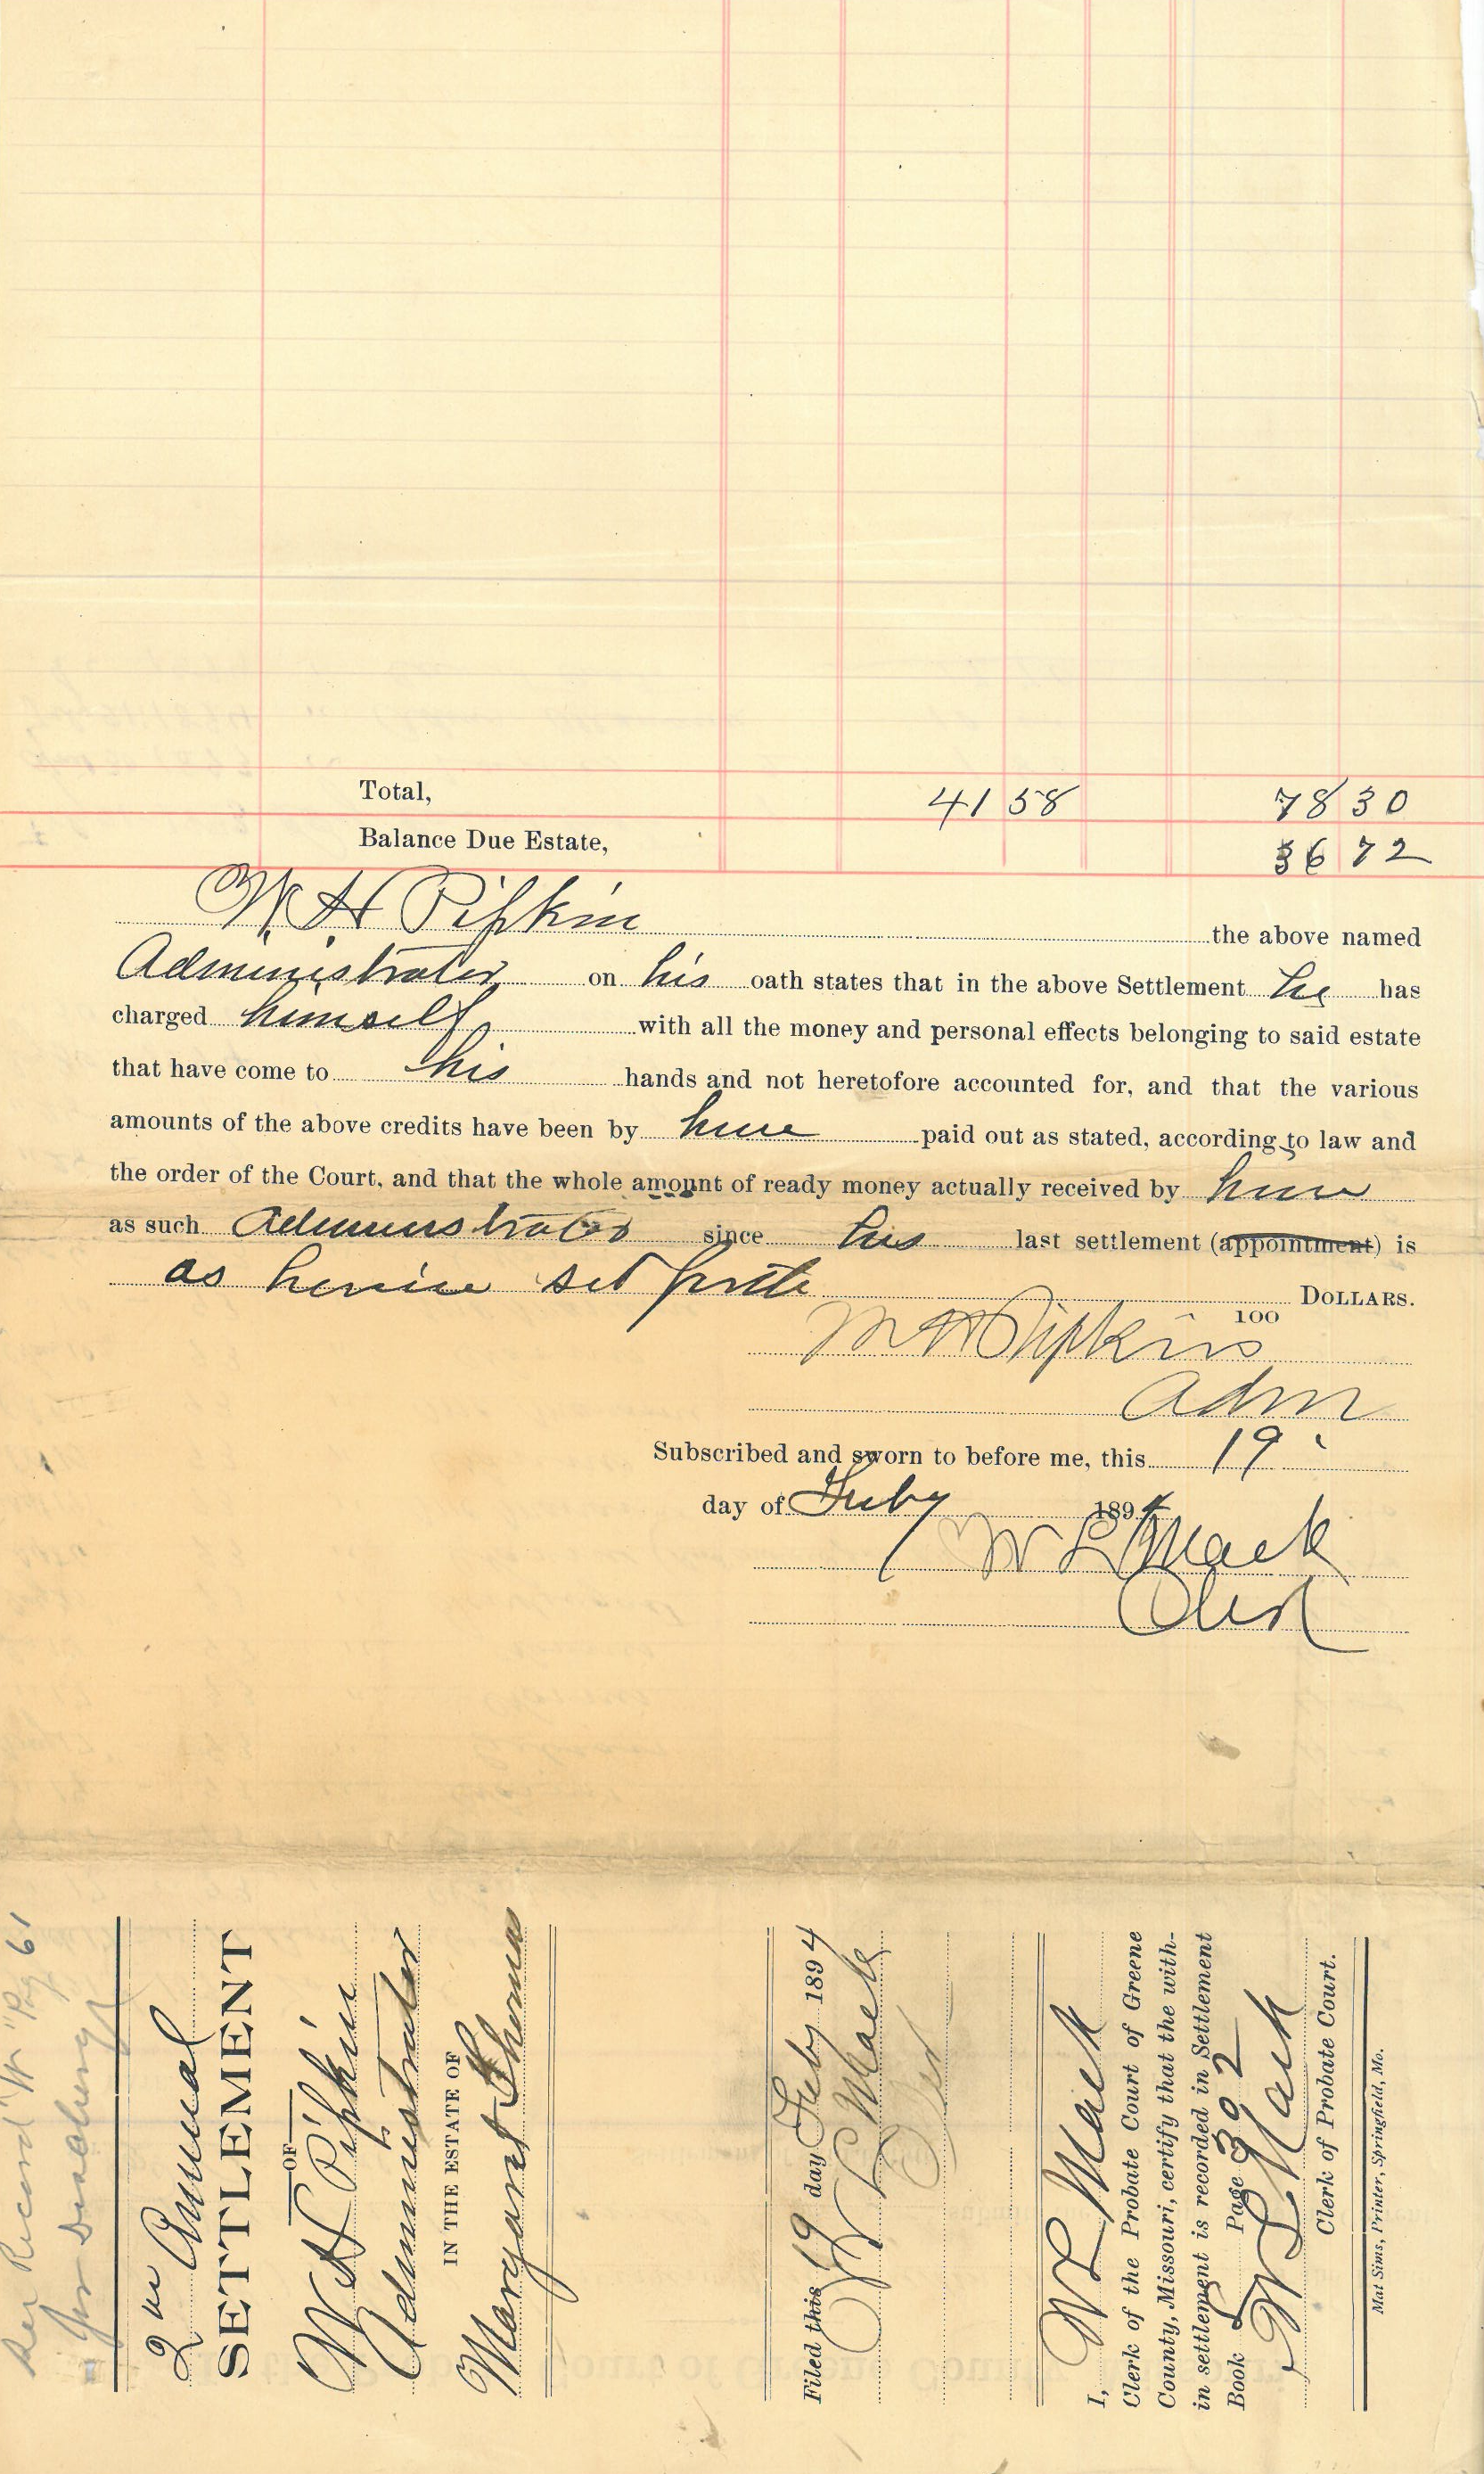 Total, 41 58 78 30
Balance Due Estate, 36 72
W. H Pipkin the above named
Administrator on his oath states that in the above Settlement he has
charged himself with all the money and personal effects belonging to said estate
that have come to his hands and not heretofore accounted for, and that the various
amounts of the above credits have been by him paid out as stated, according to law and
the order of the Court, and that the whole amount of ready money actually received by him
as such Administrator since his last settlement (appointment) is
as herein set forth DOLLARS.
100
W H Pipkin
Adm
Subscribed and sworn to before me, this 19
day of Feby 1894
W L Mack
Clerk
See Record "W" Pg 61
for Discharge
2nd Annual
SETTLEMENT
OF
W H Pipkin
Administrator
IN THE ESTATE OF
Maryant Thomas
Filed this 19 day Feby 1894
W L Mack
Clerk
I, W L Mack
Clerk of the Probate Court of Greene
County, Missouri, certify that the with-
in settlement is recorded in Settlement
Book Page 392
W L Mack
Clerk of Probate Court.
Mat Sims, Printer, Springfield, Mo.